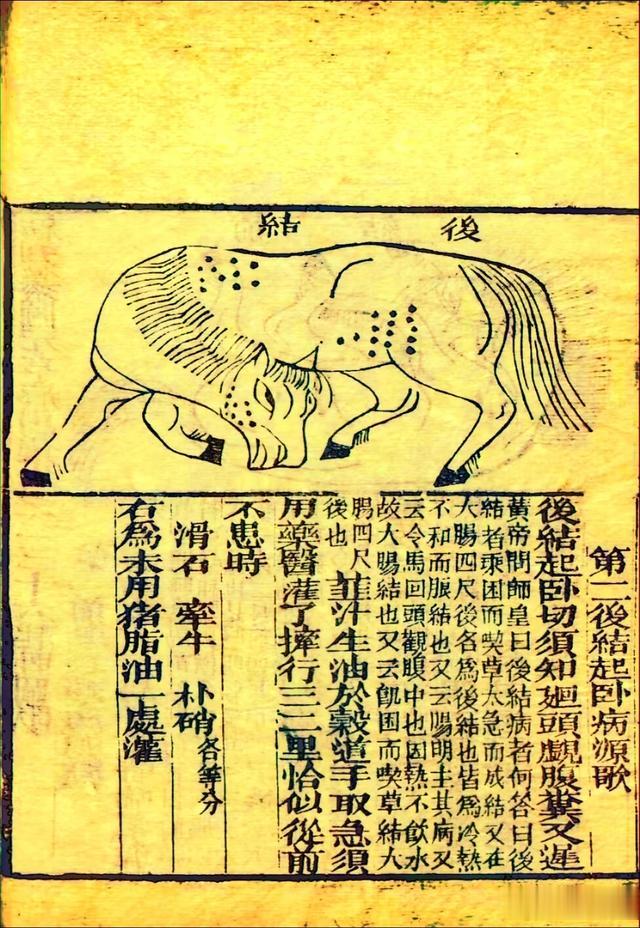 後結
第二後結起卧病源歌
後結起卧切須知廻頭覷腹糞又遲
黃帝問師皇曰後結病者何答曰後
結者乘困而喫草太急而成結又在
大腸四尺後名為後結也皆為冷熱
不和而脹結也又云腸明主其病又
云令馬回頭觀腹中也因熱不飲水
故大腸結也又云飢困而喫草結大
腸四尺
後也 韮汁生油於穀道手取急須
用藥醫灌了捽行三二里恰似從前
不患時
滑石 牽牛 朴硝各等分
右為末用猪脂油一處灌